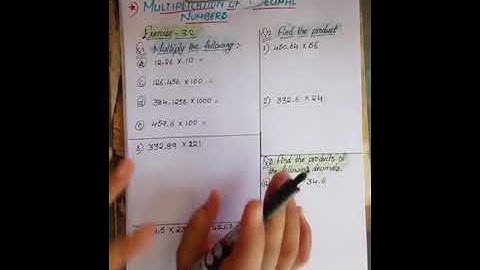 MULTIPLICATION OF DECIMAL
NUMBERS
Exercise - 3.2
Q1 Multiply the following:
a 12.26 × 10 =
c 126.456 × 100 =
d 384.1256 × 1000 =
e 459.6 × 100 =
3) 332.89 × 221
Q2 Find the product
1) 450.64 × 56
2) 332.6 × 24
Find the products of
the following decimals.
34.6